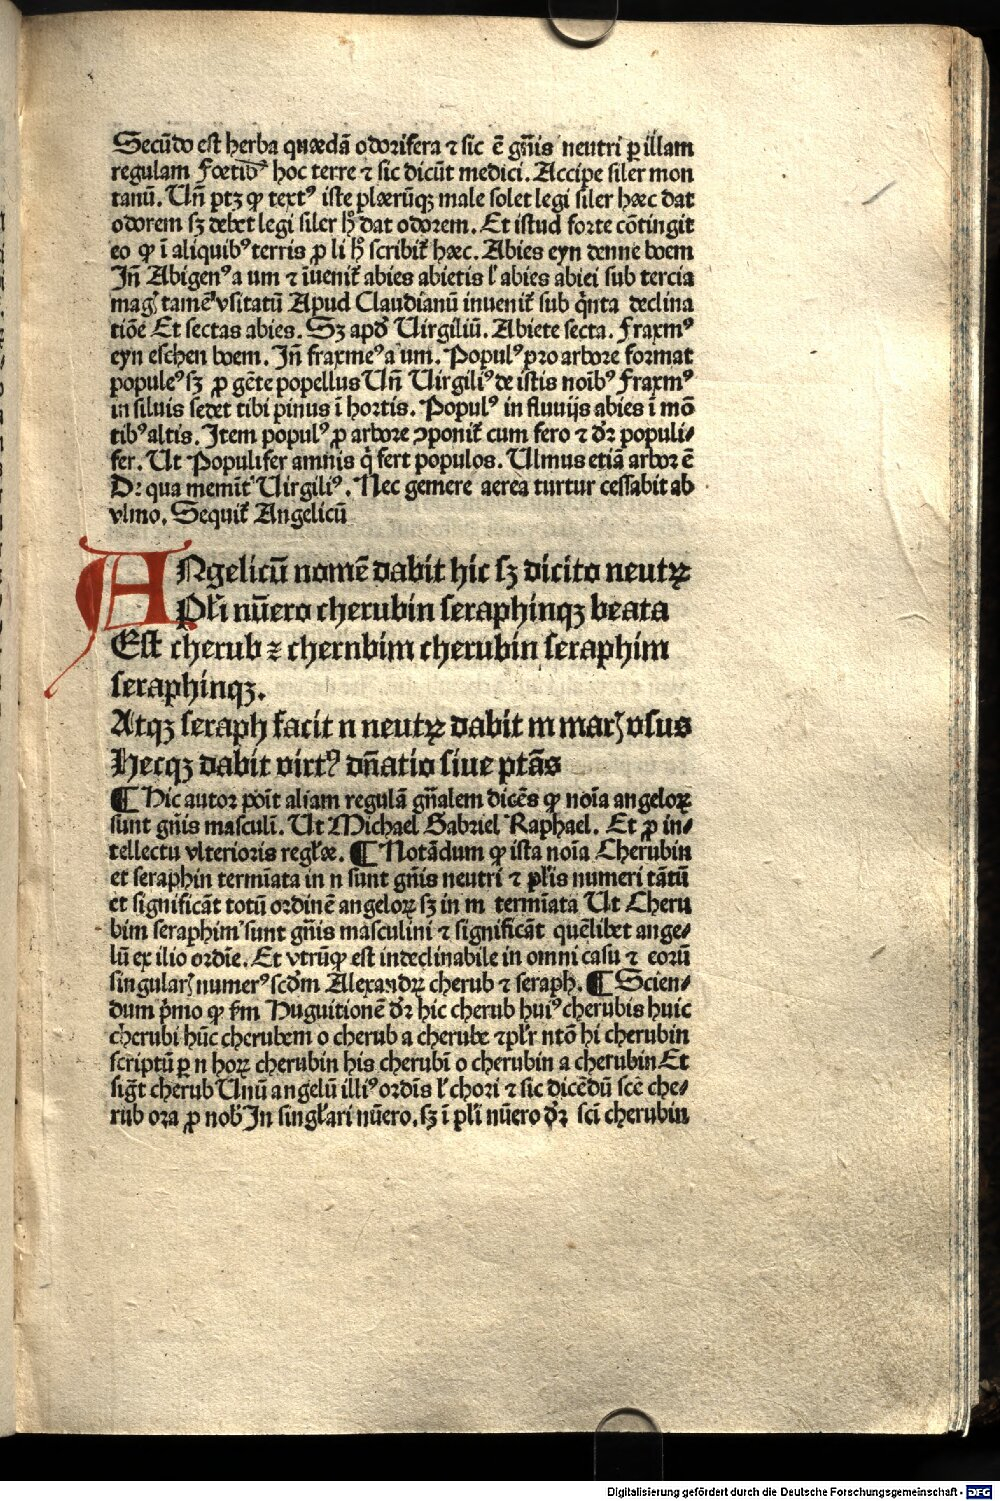 Secūdo est herba quædā odorifera ⁊ sic ē gn̄is neutri ꝑ illam
regulam Fœtidꝰ hoc terre ⁊ sic dicūt medici. Accipe siler mon
tanū. Un̄ ptꝫ ꝙ textꝰ iste plærūqꝫ male solet legi siler hæc dat
odorem sꝫ debet legi siler hͦ dat odorem. Et istud forte cōtingit
eo ꝙ ī aliquibꝰ terris ꝓ li hͦ scribit᷑ hæc. Abies eyn denne boem
Jn̄ Abigenꝰ a um ⁊ īuenit᷑ abies abietis ł abies abiei sub tercia
magꝭ tamē vsitatū Apud Claudianū inuenit᷑ sub q̇nta declina
tiōe Et sectas abies. Sꝫ apd̓ Uirgiliū. Abiete secta. Fraxmꝰ
eyn eschen boem. Jn̄ fraxmeꝰ a um. Populꝰ pro arbore format
populeꝰ sꝫ ꝓ gēte popellus Un̄ Uirgiliꝰ de istis noībꝰ Fraxmꝰ
in siluis sedet tibi pinus ī hortis. Populꝰ in fluuijs abies ī mō
tibꝰ altis. Jtem populꝰ ꝓ arbore ↄponit᷑ cum fero ⁊ dr̄ populi⸗
fer. Ut Populifer amnis q̇ fert populos. Ulmus etiā arbor ē
De qua memīt Uirgiliꝰ. Nec gemere aerea turtur cessabit ab
vlmo. Sequit᷑ Angelicū
ANgelicū nomē dabit hic sꝫ dicito neutꝝ
Płi nūero cherubin seraphinqꝫ beata
Est cherub ⁊ chernbim cherubin seraphim
seraphinqꝫ.
Atqꝫ seraph facit n neutꝝ dabit m marꝭ vsus
Hecqꝫ dabit virtꝰ dn̄atio siue ptās
¶ Hic autor poīt aliam regulā gn̄alem dicēs ꝙ noīa angeloꝝ
sunt gn̄is masculī. Ut Michael Gabriel Raphael. Et ꝓ in⸗
tellectu vlterioris regłæ. ¶ Notādum ꝙ ista noīa Cherubin
et seraphin termīata in n sunt gn̄is neutri ⁊ płis numeri tātū
et significāt totū ordinē angeloꝝ sꝫ in m termīata Ut Cheru
bim seraphim sunt gn̄is masculini ⁊ significāt quēlibet ange⸗
lū ex ilio ordīe. Et vtrūqꝫ est indeclinabile in omni casu ⁊ eorū
singularꝭ numerꝰ scd̄m Alexandꝝ cherub ⁊ seraph. ¶ Scien⸗
dum p̄mo ꝙ ẜm Huguitionē dr̄ hic cherub huiꝰ cherubis huic
cherubi hūc cherubem o cherub a cherube ⁊płr ntō hi cherubin
scriptū ꝑ n hoꝝ cherubin his cherubī o cherubin a cherubin Et
sigt̄ cherub Unū angelū illiꝰ ordīs ł chori ⁊ sic dicēdū scē che⸗
rub ora ꝓ nob̓ Jn singłari nūero. sꝫ ī płi nūero dr̄ scī cherubin
Digitalisierung gefördert durch die Deutsche Forschungsgemeinschaft - DFG